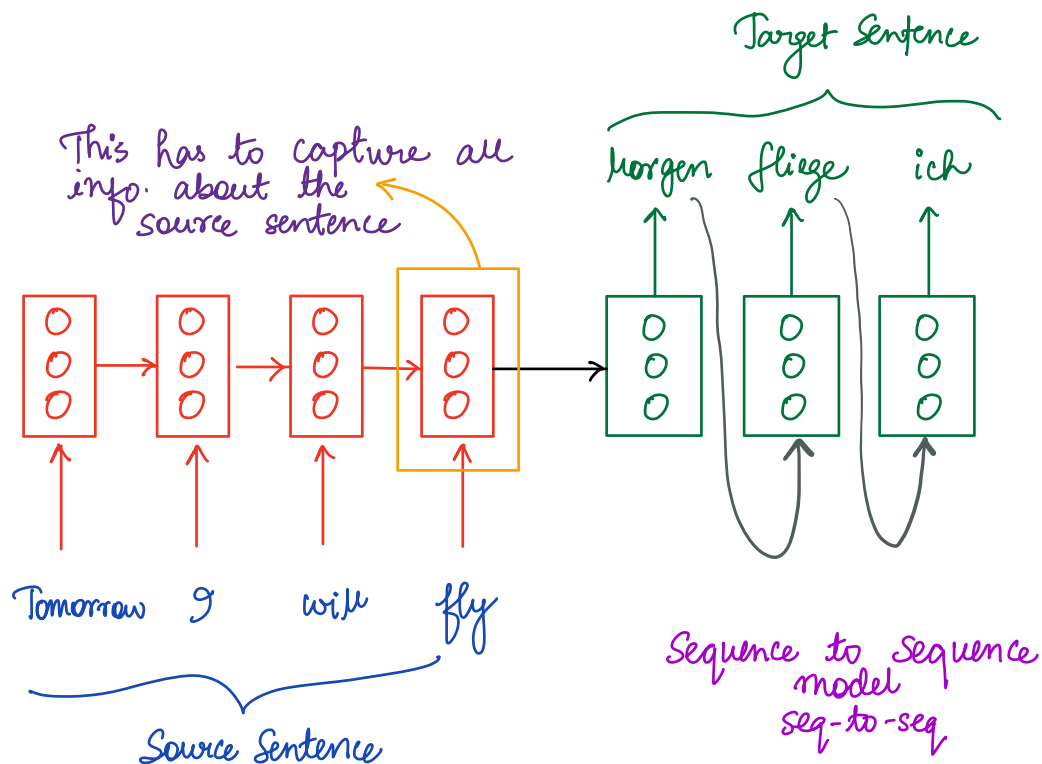 Target Sentence
This has to capture all
info. about the
source sentence
Morgen fliege ich
Tomorrow I will fly
Source Sentence
Sequence to sequence
model
seq-to-seq